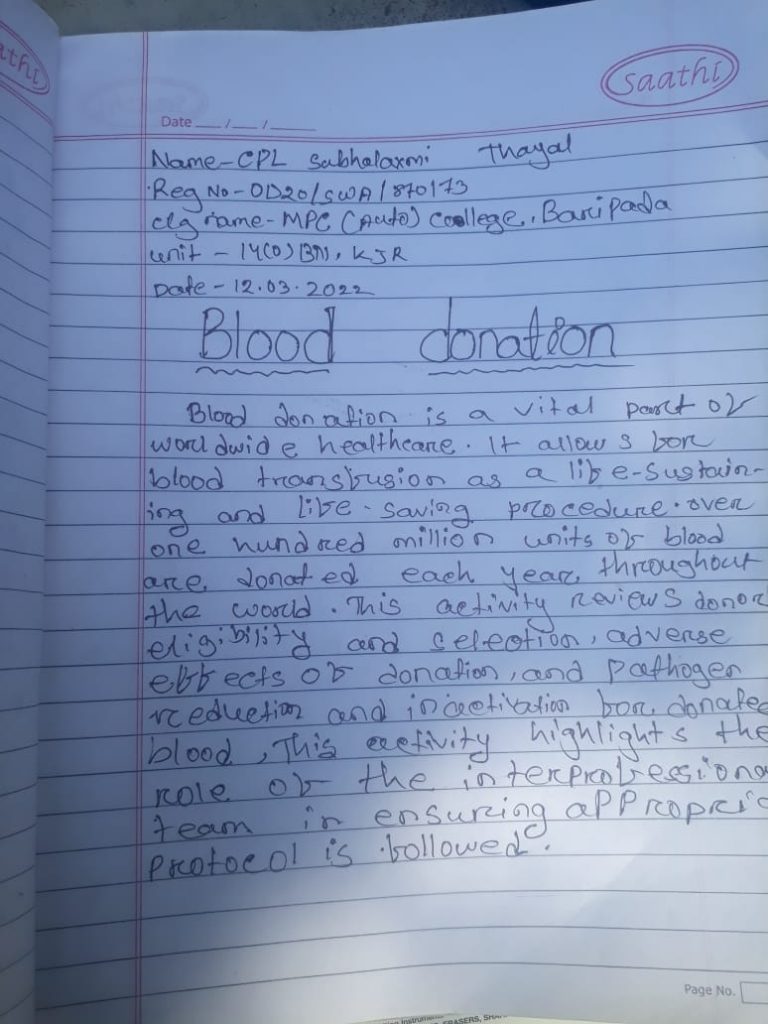 saathi
Date __/__/____
Name-CPL Subhalaxmi Thayal
Reg No-OD20/SWA/870173
clg name-MPC (Auto) College, Baripada
unit - 14(O) BN, KJR
Date-12.03.2022
Blood donation
Blood donation is a vital part of
worldwide healthcare. It allows for
blood transfusion as a life-sustain-
ing and life-saving procedure. over
one hundred million units of blood
are donated each year throughout
the world. This activity reviews donor
eligibility and selection, adverse
effects of donation, and pathogen
reduction and inactivation for donated
blood, This activity highlights the
role of the interprofessiona
team in ensuring appropria
protocol is followed.
Page No.